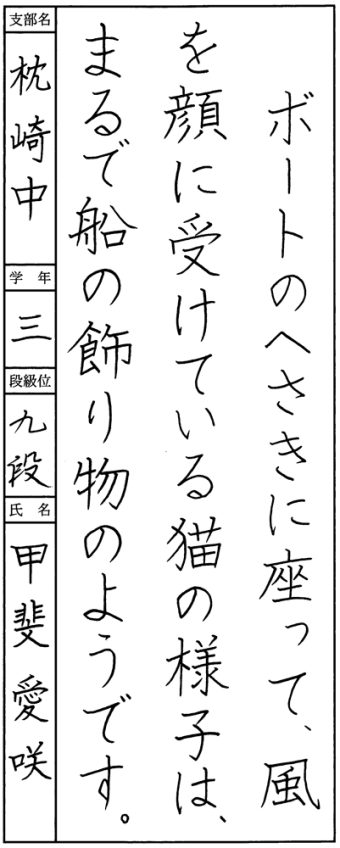 ボートのへさきに座って、風
を顔に受けている猫の様子は、
まるで船の飾り物のようです。
支部名
枕崎中
学年
三
段級位
九段
氏名
甲斐愛咲